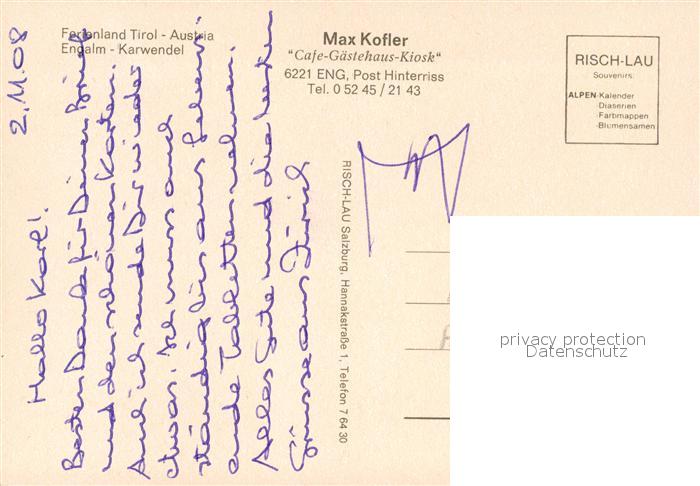 Ferienland Tirol - Austria
Engalm - Karwendel
Max Kofler
"Cafe-Gästehaus-Kiosk"
6221 ENG, Post Hinterriss
Tel. 0 52 45 / 21 43
RISCH-LAU
Souvenirs:
ALPEN-Kalender
-Diaserien
-Farbmappen
-Blumensamen
RISCH-LAU Salzburg, Hannakstraße 1, Telefon 7 64 30
2.11.08
Hallo Karl!
Besten Dank für Deinen Brief
und den schönen Karten.
Auch ich sende Dir wieder
etwas. Ich muss auch
ständig bis ans Lebens-
ende Tabletten nehmen.
Alles Gute und die besten
Grüsse aus Zürich
privacy protection
Datenschutz